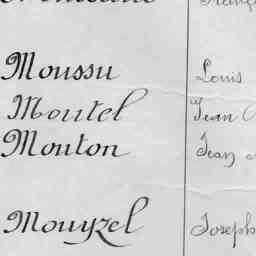 Moussu Louis
Moutel Jean
Mouton Jean
Mouyzel Joseph